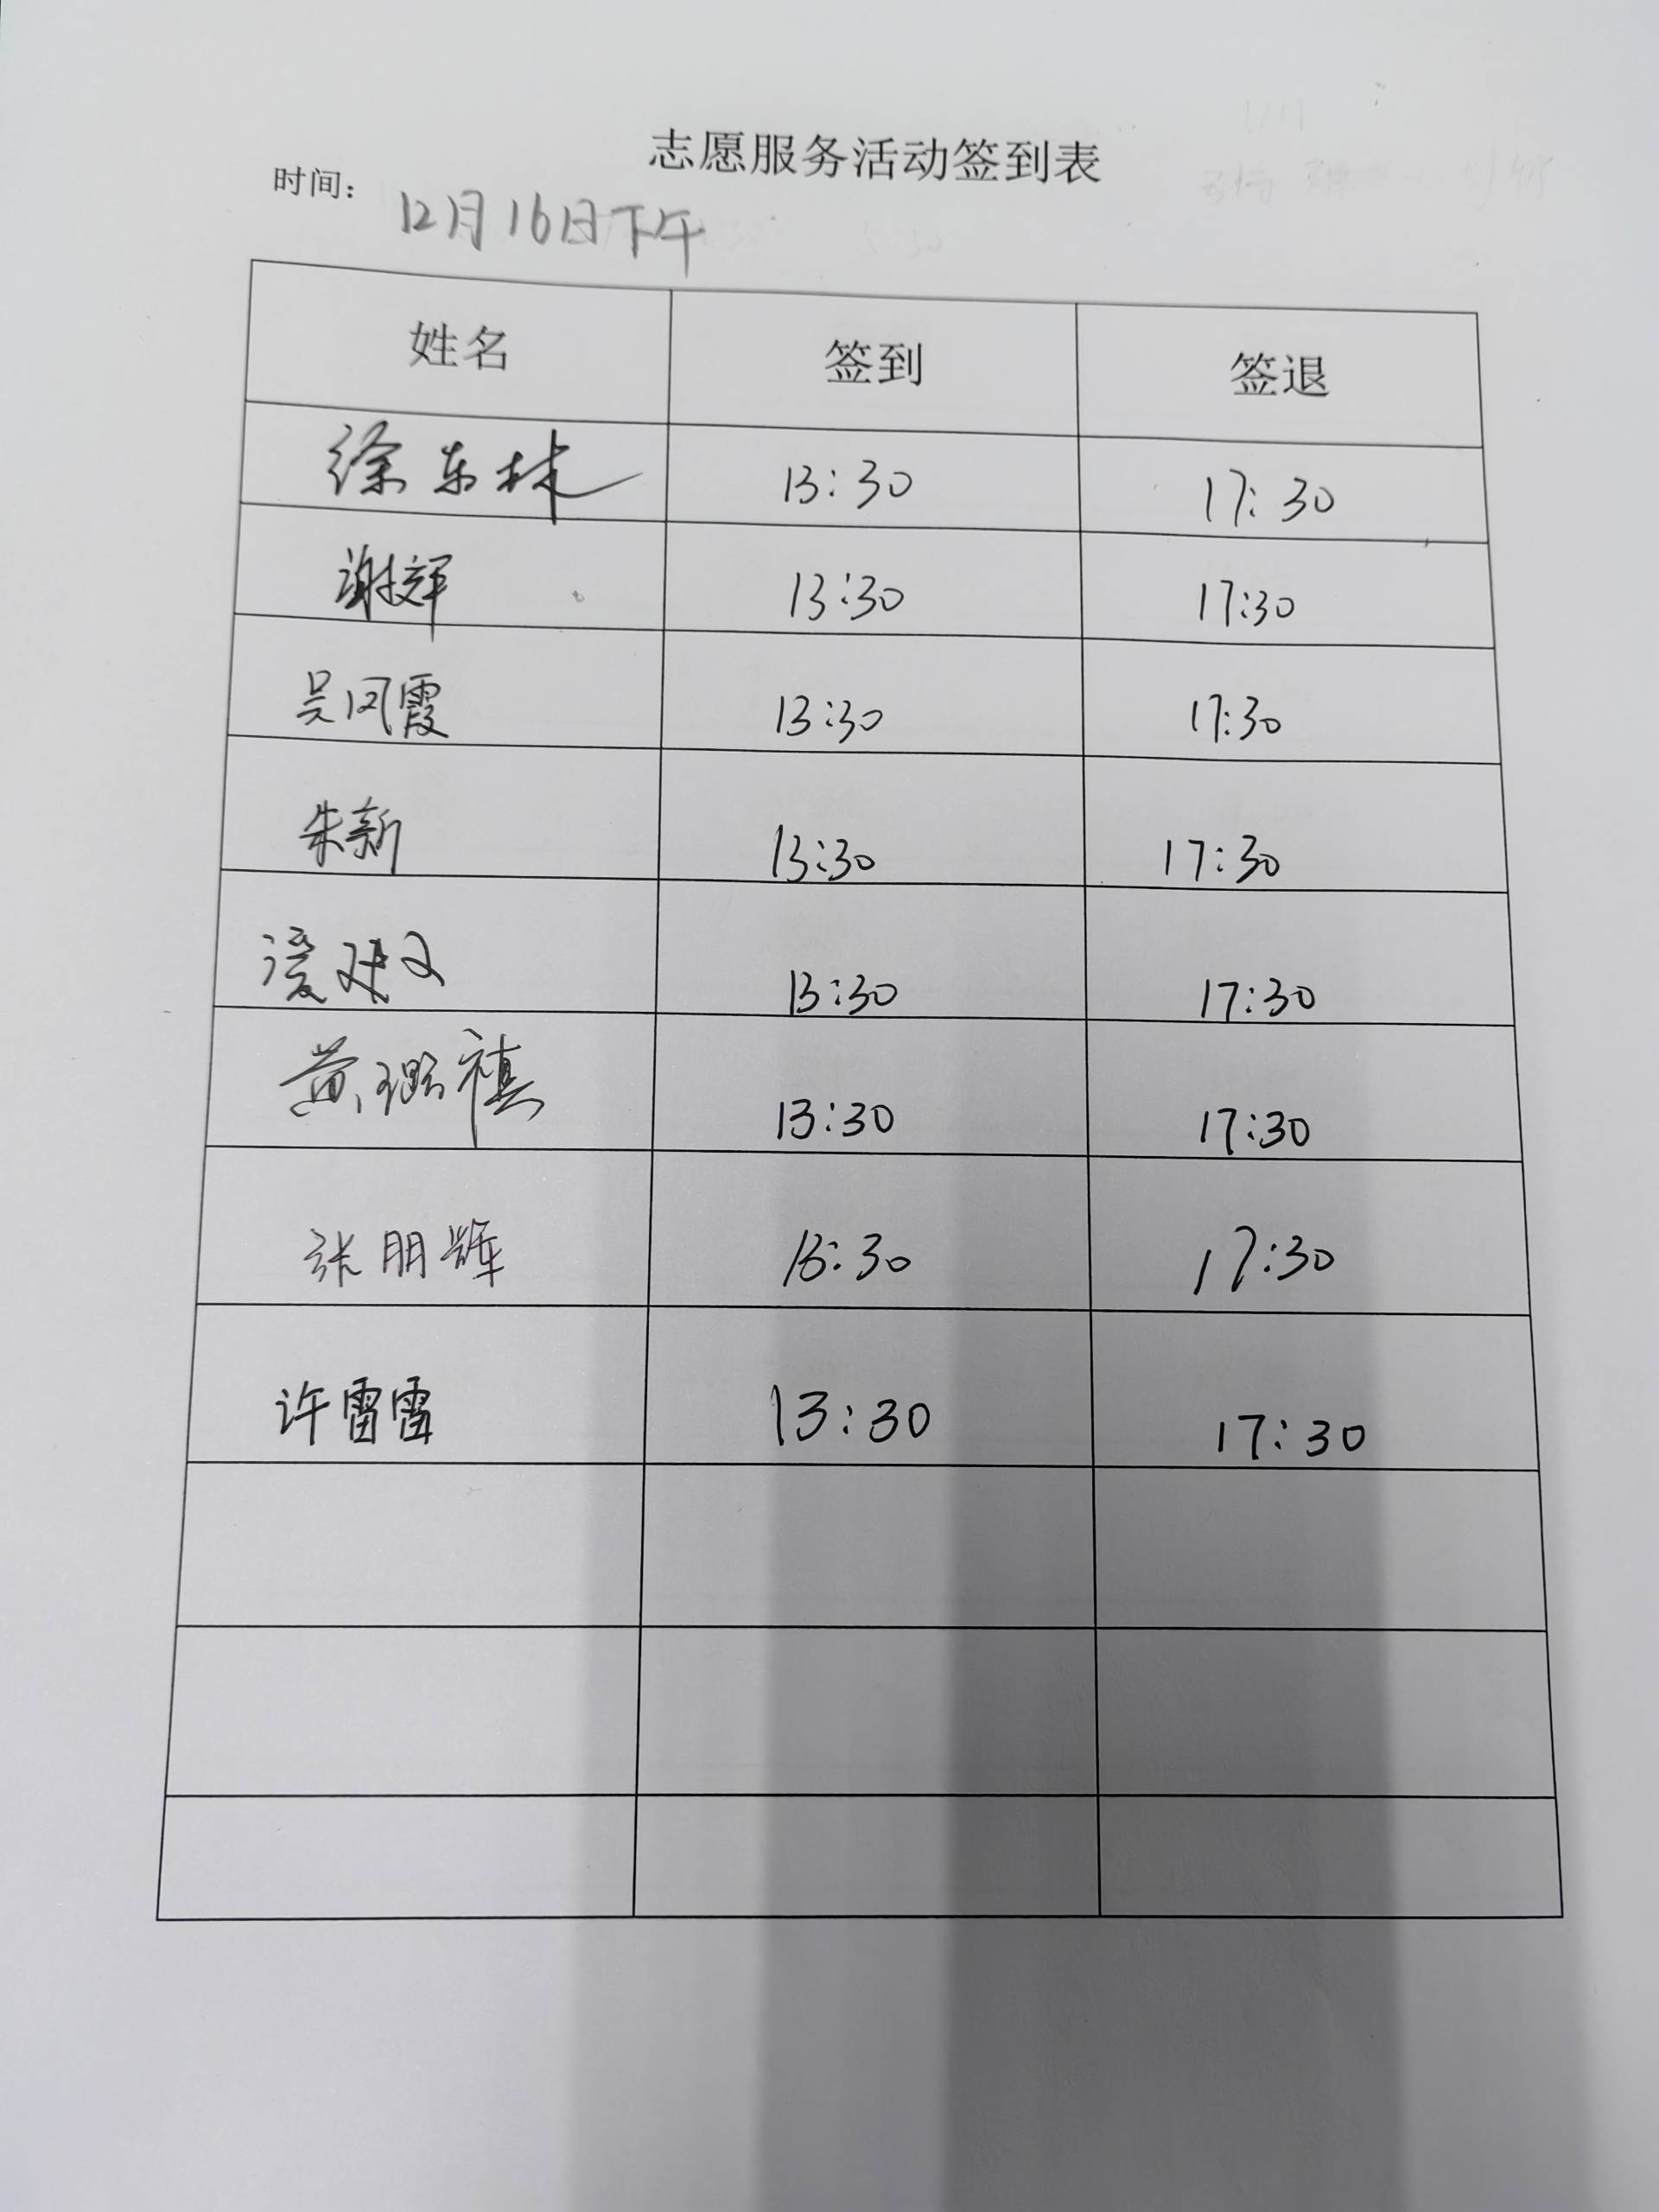 志愿服务活动签到表
时间：12月16日下午
姓名 签到 签退
徐东林 13:30 17:30
谢文辉 13:30 17:30
吴凤霞 13:30 17:30
朱新 13:30 17:30
13:30 17:30
黄璐禛 13:30 17:30
张朋辉 13:30 17:30
许雷雷 13:30 17:30